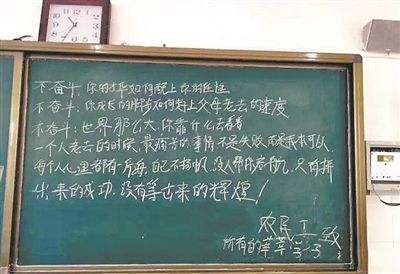 不奋斗:你的才华如何配上你的任性
不奋斗:你成长的脚步如何赶上父母老去的速度
不奋斗:世界那么大,你靠什么去看看
一个人老去的时候,最痛苦的事情,不是失败,而是我本可以,
每个人心里都有一片海,自己不扬帆,没人帮你启航,只有拼
出来的成功,没有等出来的辉煌!
农民工致
所有的莘莘学子